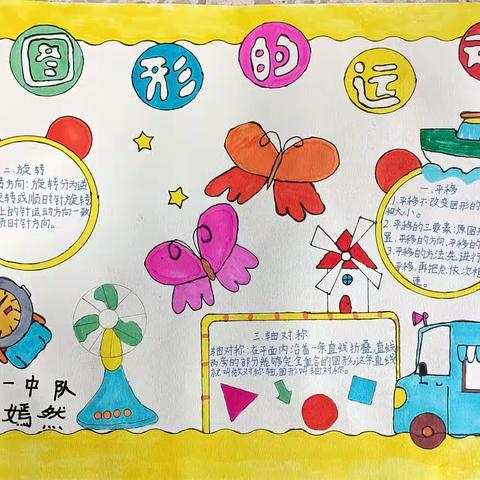 图形的运动
二.旋转
方向：旋转分为逆
时针旋转
上的针运动方向一致
顺时针方向。
一.平移
1.平移不改变图形的
和大小。
2.平移的三要素：原图形
置、平移的方向、平移的
3.平移的方法：先进行
平移，再把点依次相
连。
三.轴对称
轴对称：在平面内沿着一条直线折叠，直线
两旁的部分能够完全重合的图形，这条直线
就叫做对称轴，图形叫轴对称。
一中队
嫣然